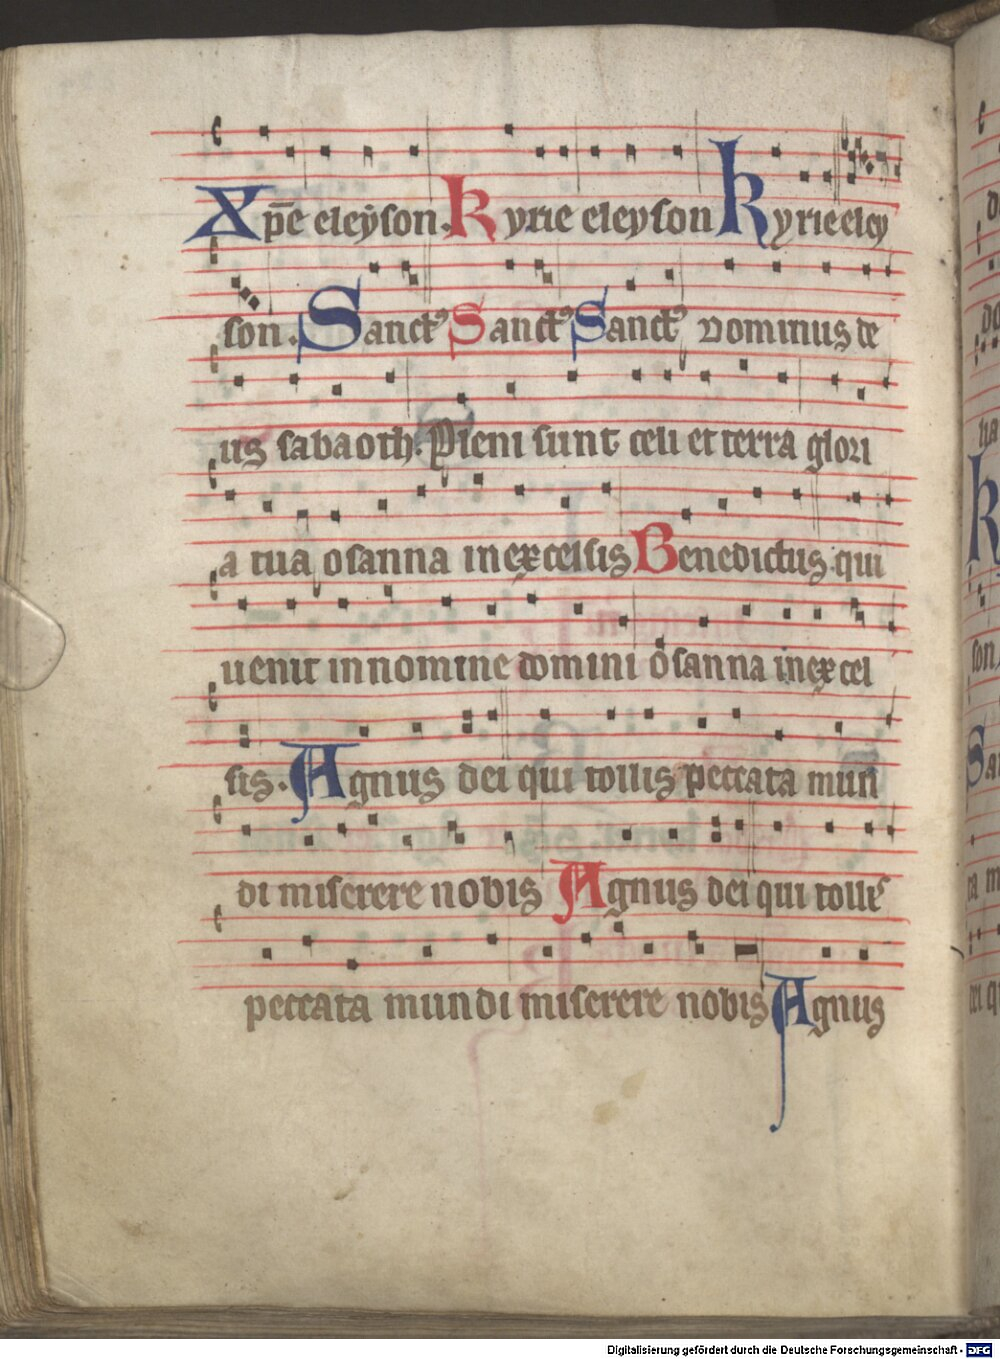 Xp̄e eleyson. Kyrie eleyson Kyrie eley
son. Sanctꝰ Sanctꝰ Sanctꝰ dominus de
us sabaoth. Pleni sunt celi et terra glori
a tua osanna in excelsis Benedictus qui
uenit in nomine domini osanna in excel
sis. Agnus dei qui tollis peccata mun
di miserere nobis Agnus dei qui tollis
peccata mundi miserere nobis Agnus
Digitalisierung gefördert durch die Deutsche Forschungsgemeinschaft - DFG